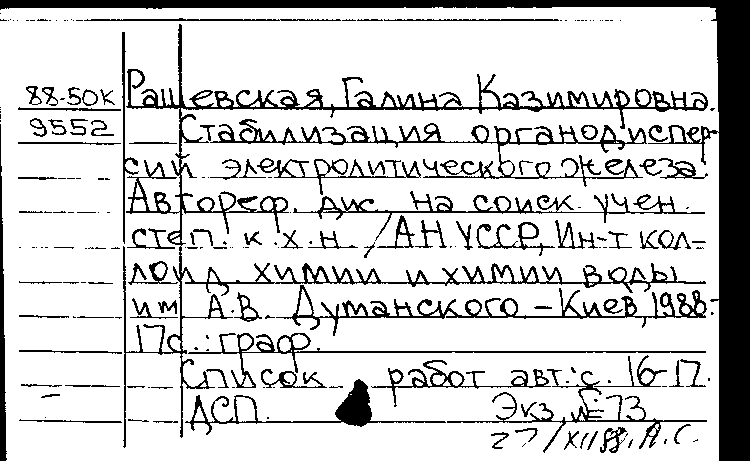 88-50К Рашевская, Галина Казимировна.
9552 Стабилизация органодиспер-
сий электролитического железа:
Автореф. дис. на соиск. учен.
степ. к. х. н. / АН УССР, Ин-т кол-
лоид. химии и химии воды
им. А.В. Думанского. – Киев, 1988.-
17с.: граф.
Список работ авт.: с. 16-17.
ДСП. Экз. № 73
27/XII88. А.С.